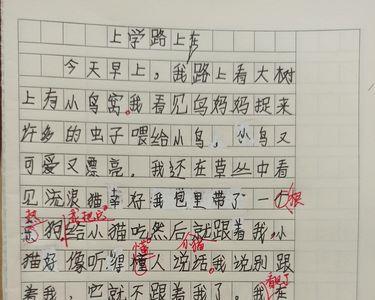 上学路上
今天早上，我路上看大树
上有小鸟窝。我看见鸟妈妈捉来
许多的虫子喂给小鸟，小鸟又
可爱又漂亮，我还在草丛中看
见流浪猫幸好我包里带了一
给小猫吃然后就跟着我，小
猫好像听得懂人说话。我说别跟
着我，它就不跟着我了。我